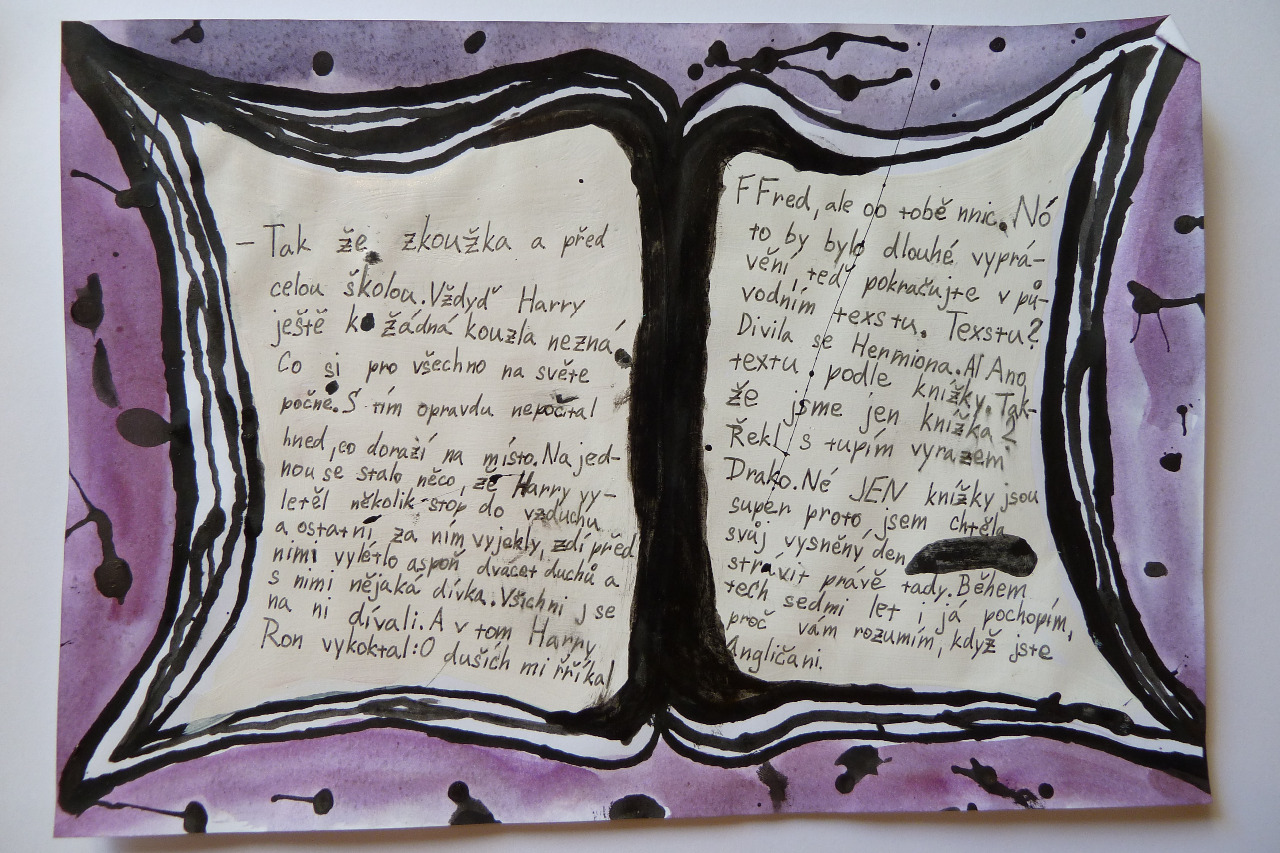 – Tak že zkouška a před
celou školou. Vždyď Harry
ještě k žádná kouzla nezná
Co si pro všechno na světe
počne. S tím opravdu nepočital
hned, co dorazí na místo. Na jed-
nou se stalo něco, že Harry vy-
letěl několik stop do vzduchu
a ostatní za ním vyjekly, zdí před
nimi vyletlo aspoň dvacet duchů a
s nimi nějaká dívka. Všichni j se
na ni dívali. A v tom Harry
Ron vykoktal: O duších mi říříkal
FFred, ale oo tobě nnic. Nó
to by bylo dlouhé vyprá-
vění teď pokračujte v pů-
vodním texstu. Texstu?
Divila se Hermiona. Aĺ Ano
textu podle knížky. Tak-
že jsme jen knížka?
Řekl s tupím vyrazem
Drako. Né JEN knížky jsou
super proto jsem chtěla
svůj vysněný den
strávit právě tady. Během
tech sedmi let i já pochopím,
proč vám rozumím, když jste
Angličani.